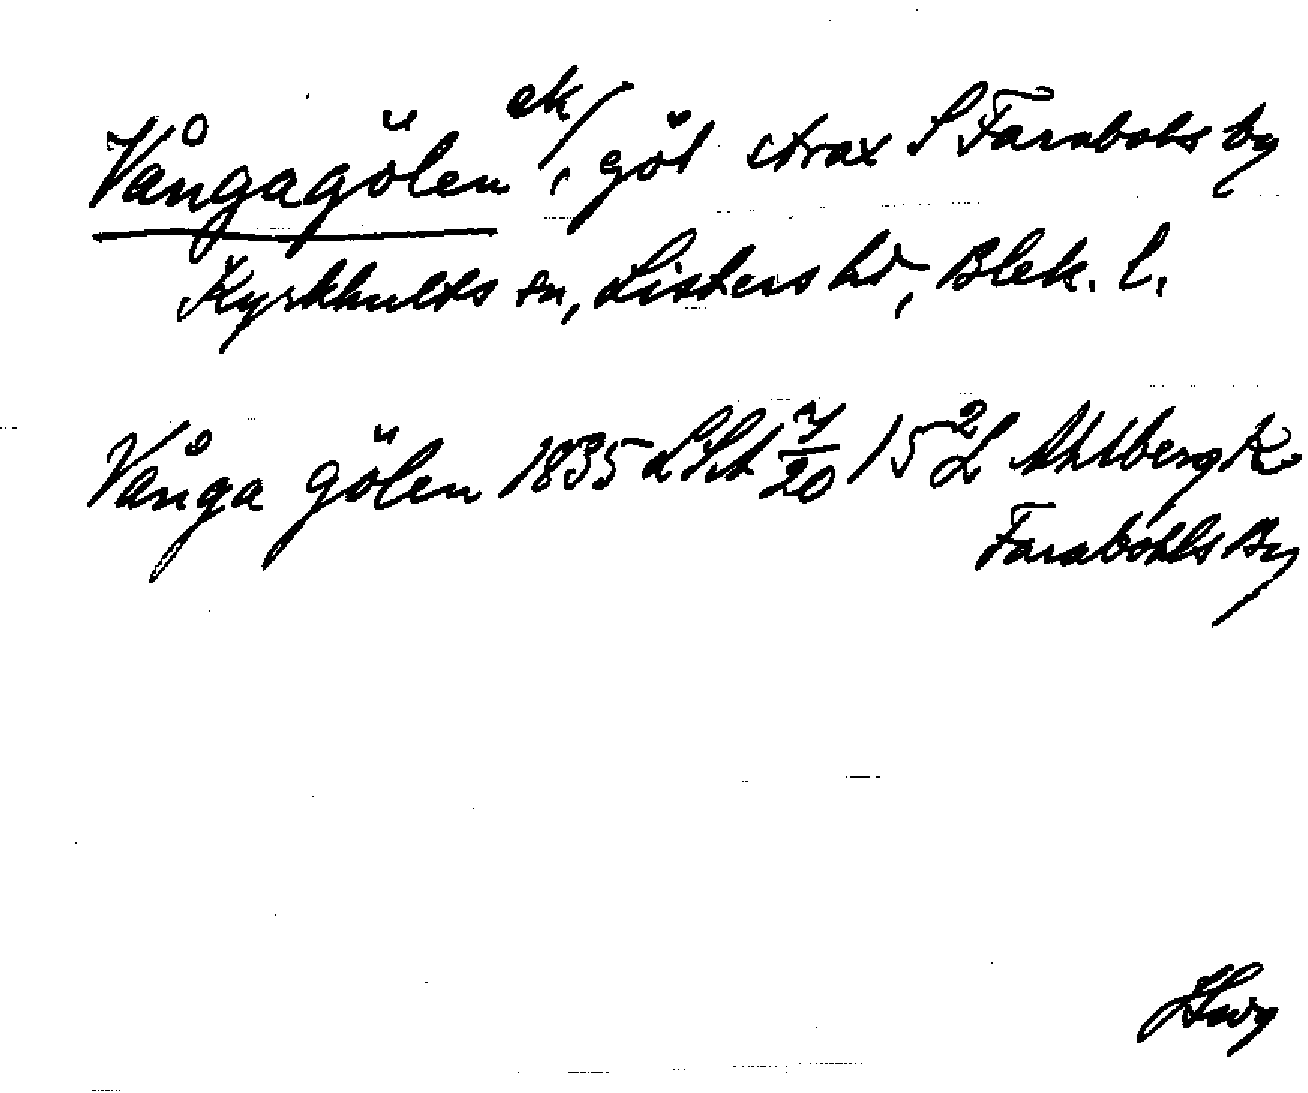 Vångagölen ek/, göl strax S Farabols by
Kyrkhults sn, Listers hd, Blek. l.
Vånga gölen 1835 LSA 7/20 15 2 L Ahlberg K
Farabohls By